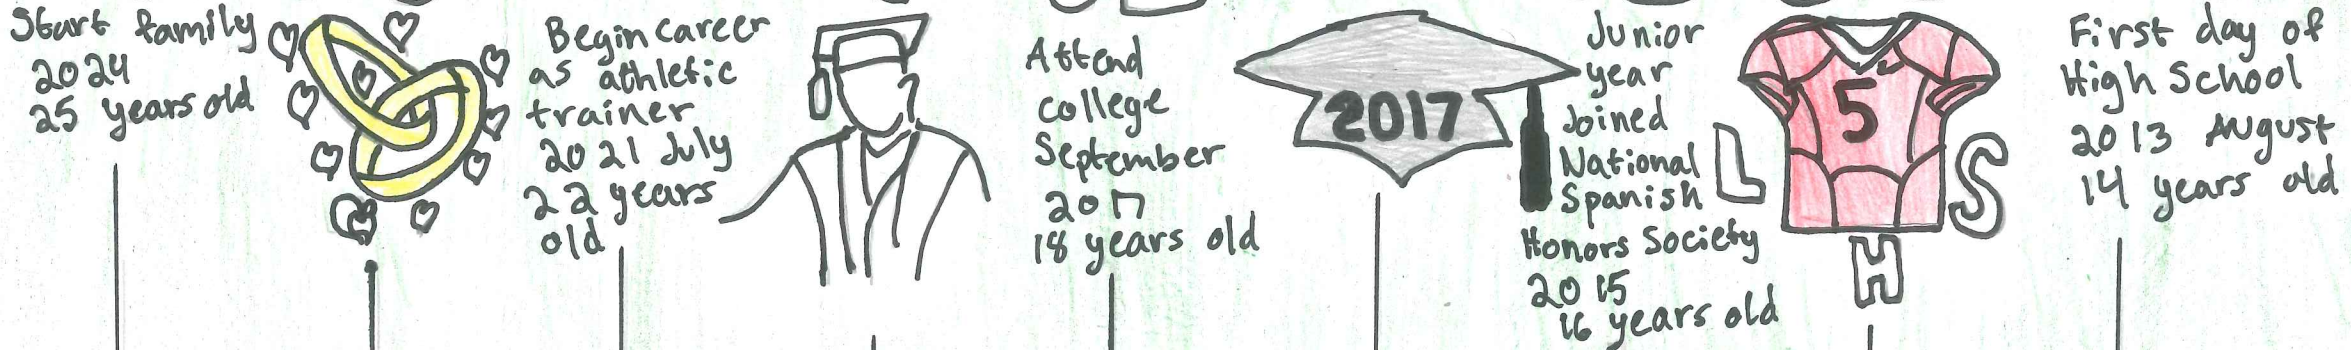 Start family
2024
25 years old
Begin career
as athletic
trainer
2021 July
22 years
old
Attend
college
September
2017
18 years old
2017
Junior
year
Joined
National
Spanish
Honors Society
2015
16 years old
L
5
S
H
First day of
High School
2013 August
14 years old